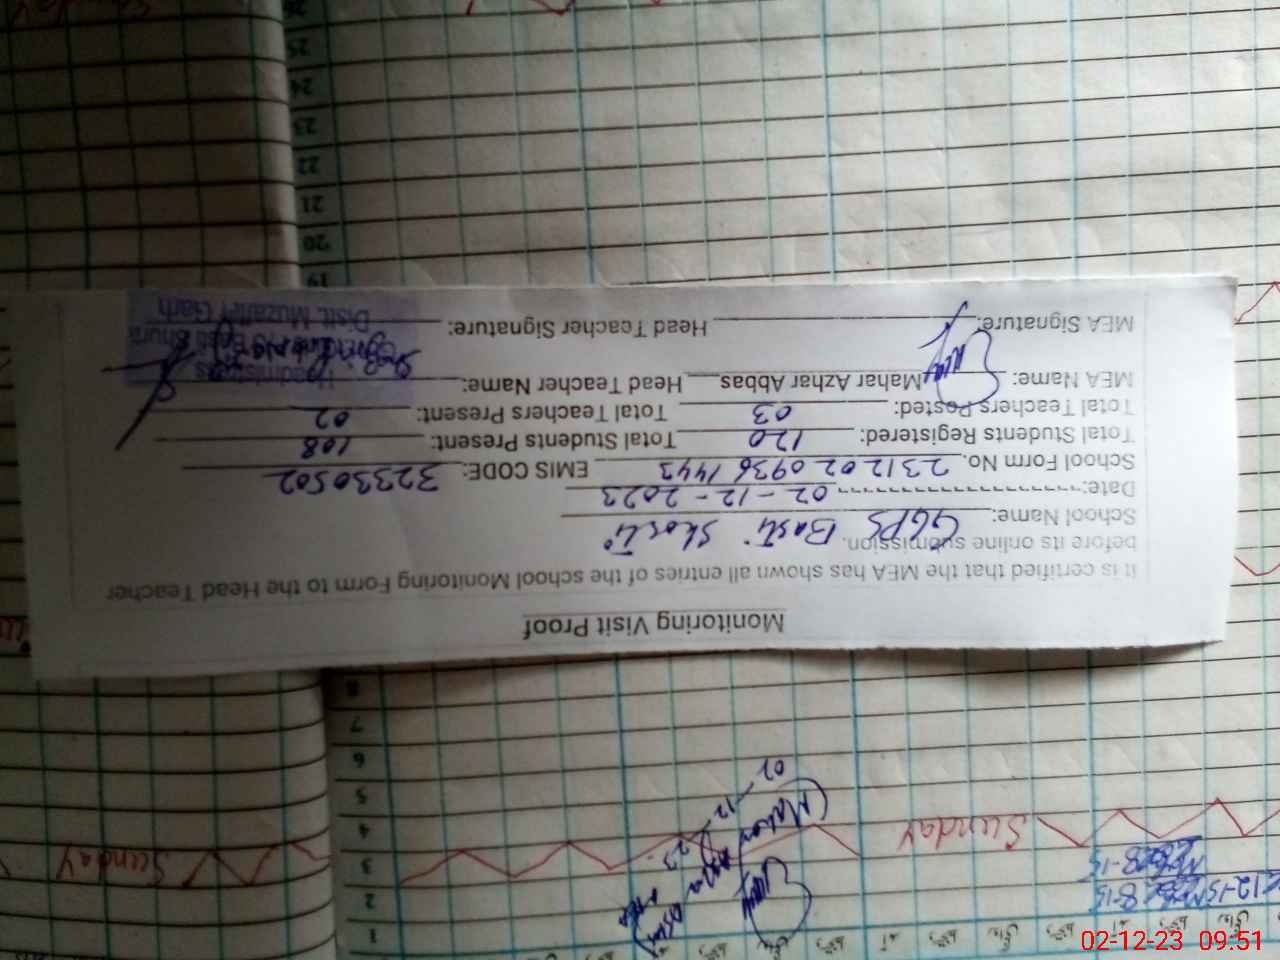 Monitoring Visit Proof
It is certified that the MEA has shown all entries of the school Monitoring Form to the Head Teacher
before its online submission.
School Name: GGPS Basti
Date: 02-12-2023
School Form No. 2312020936 1443 EMIS CODE: 32330502
Total Students Registered: 120 Total Students Present: 108
Total Teachers Posted: 03 Total Teachers Present: 02
MEA Name: Mahar Azhar Abbas Head Teacher Name:
Headmistress
MEA Signature: Head Teacher Signature:
Distt. Muzaffar Garh
Sunday
1
2
3
4
5
6
7
8
19
20
21
22
23
24
25
26
Sunday
Sunday
02-12-23
02-12-23 09:51